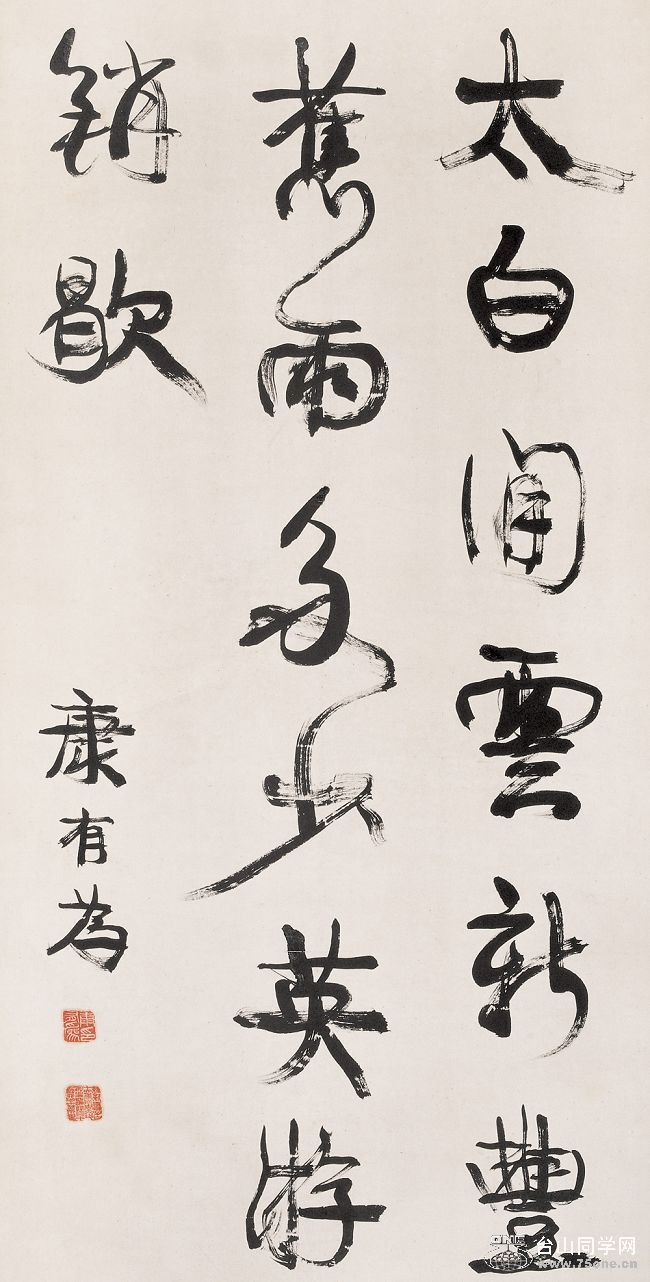 太白閒雲新豐
舊雨多少英游
銷歇
康有為
台山同学网
www.75one.cn